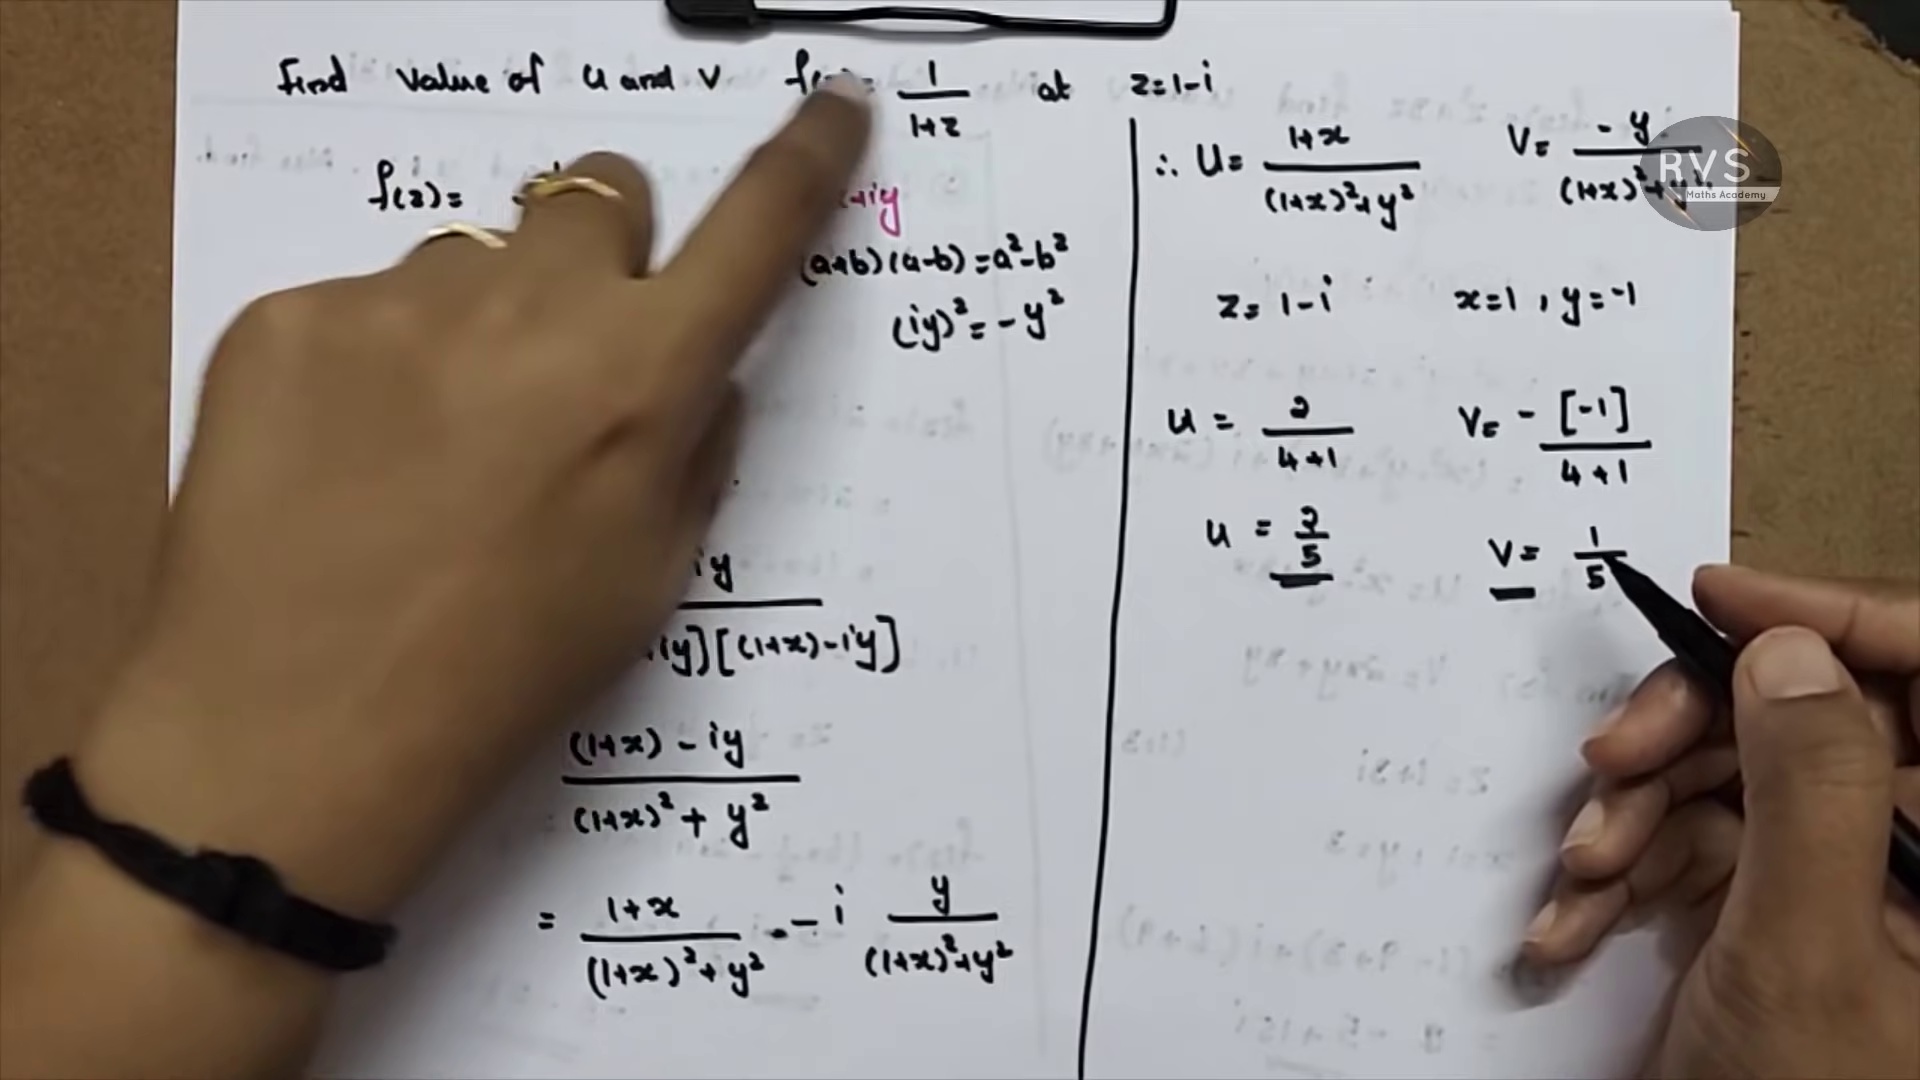 Find value of u and v f(z)= 1/(1+z) at z=1-i
f(z)=
+iy
(a+b)(a-b)=a²-b²
(iy)²=-y²
iy
iy][(1+x)-iy]
(1+x) - iy
(1+x)² + y²
= (1+x)/((1+x)²+y²) - i y/((1+x)²+y²)
∴ u= (1+x)/((1+x)²+y²) v= -y/((1+x)²+y²)
RVS
Maths Academy
z= 1-i x=1, y=-1
u = 2/(4+1) v= -[-1]/(4+1)
u = 2/5 v= 1/5